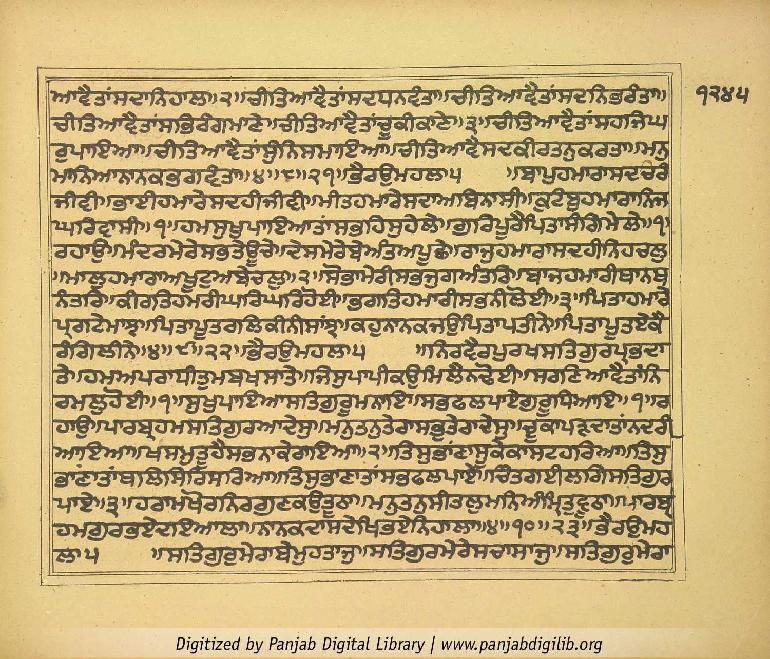 ਆਵੈਤਾਂਸਦਾਨਿਹਾਲਾ॥੨॥ਚੀਤਿਆਵੈਤਾਂਸਦਧਨਵੰਤਾ॥ਚੀਤਿਆਵੈਤਾਂਸਦਨਿਭਰੰਤਾ॥
ਚੀਤਿਆਵੈਤਾਂਸਭਿਰੰਗਮਾਣੇ॥ਚੀਤਿਆਵੈਤਾਂਚੂਕੀਕਾਣੇ॥੩॥ਚੀਤਿਆਵੈਤਾਂਸਹਜਿਘ
ਰੁਪਾਇਆ॥ਚੀਤਿਆਵੈਤਾਂਸੁੰਨਿਸਮਾਇਆ॥ਚੀਤਿਆਵੈਸਦਕੀਰਤਨੁਕਰਤਾ॥ਮਨੁ
ਮਾਨਿਆਨਾਨਕਭਗਵੰਤਾ॥੪॥੮॥੨੧॥ਭੈਰਉਮਹਲਾ੫ ॥ਬਾਪੁਹਮਾਰਾਸਦਚਰੰ
ਜੀਵੀ॥ਭਾਈਹਮਾਰੇਸਦਹੀਜੀਵੀ॥ਮੀਤਹਮਾਰੇਸਦਾਅਬਿਨਾਸੀ॥ਕੁਟੰਬੁਹਮਾਰਾਨਿਜ
ਘਰਿਵਾਸੀ॥੧॥ਹਮਸੁਖੁਪਾਇਆਤਾਂਸਭਹਿਸੁਹੇਲੇ॥ਗੁਰਿਪੂਰੈਪਿਤਾਸੰਗਿਮੇਲੇ॥੧॥
ਰਹਾਉ॥ਮੰਦਰਮੇਰੇਸਭਤੇਊਚੇ॥ਦੇਸਮੇਰੇਬੇਅੰਤਅਪੂਛੇ॥ਰਾਜੁਹਮਾਰਾਸਦਹੀਨਿਹਚਲੁ
॥ਮਾਲੁਹਮਾਰਾਅਖੂਟੁਅਬੇਚਲੁ॥੨॥ਸੋਭਾਮੇਰੀਸਭਜੁਗਅੰਤਰਿ॥ਬਾਜਹਮਾਰੀਥਾਨਥ
ਨੰਤਰਿ॥ਕੀਰਤਿਹਮਰੀਘਰਿਘਰਿਹੋਈ॥ਭਗਤਿਹਮਾਰੀਸਭਨੀਲੋਈ॥੩॥ਪਿਤਾਹਮਾਰੇ
ਪ੍ਰਗਟੇਮਾਝਾ॥ਪਿਤਾਪੂਤਰਲਿਕੀਨੀਸਾਂਝਾ॥ਕਹੁਨਾਨਕਜਉਪਿਤਾਪਤੀਨੇ॥ਪਿਤਾਪੂਤਏਕੈ
ਰੰਗਿਲੀਨੇ॥੪॥੯॥੨੨॥ਭੈਰਉਮਹਲਾ੫ ॥ਨਿਰਵੈਰਪੁਰਖਸਤਿਗੁਰਪ੍ਰਭਦਾ
ਤੇ॥ਹਮਅਪਰਾਧੀਤੁਮਬਖਸਾਤੇ॥ਜਿਸੁਪਾਪੀਕਉਮਿਲੈਨਢੋਈ॥ਸਰਣਿਆਵੈਤਾਂਨਿ
ਰਮਲੁਹੋਈ॥੧॥ਸੁਖੁਪਾਇਆਸਤਿਗੁਰੂਮਨਾਇ॥ਸਭਫਲਪਾਏਗੁਰੂਧਿਆਇ॥੧॥ਰ
ਹਾਉ॥ਪਾਰਬ੍ਰਹਮਸਤਿਗੁਰਆਦੇਸੁ॥ਮਨੁਤਨੁਤੇਰਾਸਭੁਤੇਰਾਦੇਸੁ॥ਚੂਕਾਪੜਦਾਤਾਂਨਦਰੀ
ਆਇਆ॥ਖਸਮੁਤੂਹੈਸਭਨਾਕੇਰਾਇਆ॥੨॥ਤਿਸੁਭਾਣਾਸੂਕੇਕਾਸਟਹਰਿਆ॥ਤਿਸੁ
ਭਾਣਾਤਾਂਥਲਿਸਿਰਿਸਰਿਆ॥ਤਿਸੁਭਾਣਾਤਾਂਸਭਫਲਪਾਏ॥ਚਿੰਤਗਈਲਗਿਸਤਿਗੁਰ
ਪਾਏ॥੩॥ਹਰਾਮਖੋਰਨਿਰਗੁਣਕਉਤੂਠਾ॥ਮਨੁਤਨੁਸੀਤਲੁਮਨਿਅੰਮ੍ਰਿਤੁਵੂਠਾ॥ਪਾਰਬ੍ਰ
ਹਮਗੁਰਭਏਦਇਆਲਾ॥ਨਾਨਕਦਾਸਦੇਖਿਭਏਨਿਹਾਲਾ॥੪॥੧੦॥੨੩॥ਭੈਰਉਮਹ
ਲਾ੫ ॥ਸਤਿਗੁਰੁਮੇਰਾਬੇਮੁਹਤਾਜੁ॥ਸਤਿਗੁਰਮੇਰੇਸਚਾਸਾਜੁ॥ਸਤਿਗੁਰੁਮੇਰਾ
੧੨੪੫
Digitized by Panjab Digital Library | www.panjabdigilib.org